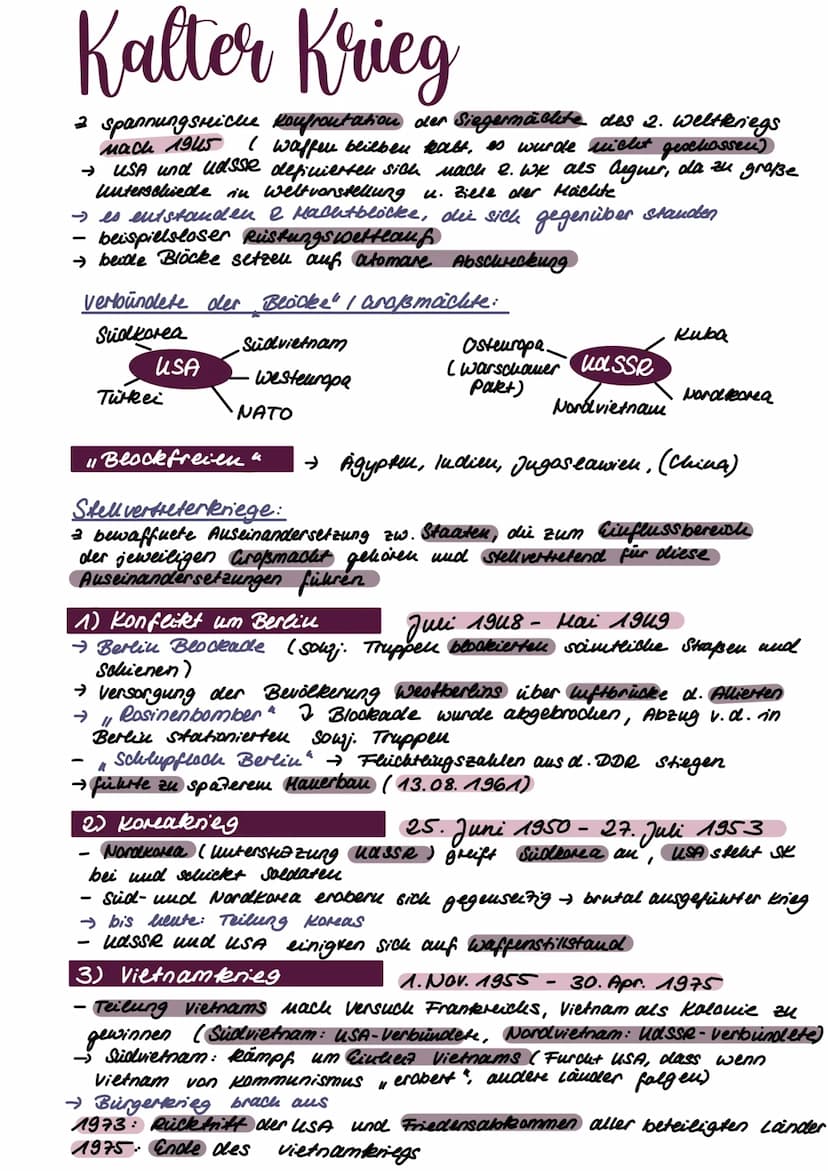 Kalter Krieg
→ spannungsreiche Konfrontation der Siegermächte des 2. Weltkriegs
nach 1945 (Waffen blieben kalt, es wurde nicht geschossen)
→ USA und UdSSR definierten sich nach 2. WK als Gegner, da zu große
Unterschiede in Weltvorstellung u. Ziele der Mächte
→ es entstanden 2 Machtblöcke, die sich gegenüber standen
- beispielsloser Rüstungswettlauf
→ beide Blöcke setzen auf atomare Abschreckung
Verbündete der „Blöcke" / Großmächte:
Südkorea
Südvietnam
USA
Westeuropa
Türkei
NATO
Kuba
Osteuropa
(Warschauer
Pakt)
UdSSR
Nordkorea
Nordvietnam
„Blockfreien" → Ägypten, Indien, Jugoslawien, (China)
Stellvertreterkriege:
→ bewaffnete Auseinandersetzung zw. Staaten, die zum Einflussbereich
der jeweiligen Großmacht gehören und stellvertretend für diese
Auseinandersetzungen führen
1) Konflikt um Berlin Juli 1948 - Mai 1949
→ Berlin Blockade (sowj. Truppen blockierten sämtliche Straßen und
Schienen)
→ Versorgung der Bevölkerung Westberlins über Luftbrücke d. Alliierten
→ „Rosinenbomber" → Blockade wurde abgebrochen, Abzug v. d. in
Berlin stationierten sowj. Truppen
- „Schlupfloch Berlin" → Flüchtlingszahlen aus d. DDR stiegen
→ führte zu späterem Mauerbau (13.08.1961)
2) Koreakrieg 25. Juni 1950 - 27. Juli 1953
- Nordkorea (Unterstützung UdSSR) greift Südkorea an, USA steht SK
bei und schickt Soldaten
- Süd- und Nordkorea erobern sich gegenseitig → brutal ausgeführter Krieg
→ bis heute: Teilung Koreas
- UdSSR und USA einigten sich auf Waffenstillstand
3) Vietnamkrieg 1. Nov. 1955 - 30. Apr. 1975
- Teilung Vietnams nach Versuch Frankreichs, Vietnam als Kolonie zu
gewinnen (Südvietnam: USA-Verbündete, Nordvietnam: UdSSR-Verbündete)
→ Südvietnam: Kampf um Einheit Vietnams (Furcht USA, dass wenn
Vietnam von Kommunismus „erobert", andere Länder folgen)
→ Bürgerkrieg brach aus
1973: Rücktritt der USA und Friedensabkommen aller beteiligten Länder
1975: Ende des Vietnamkriegs